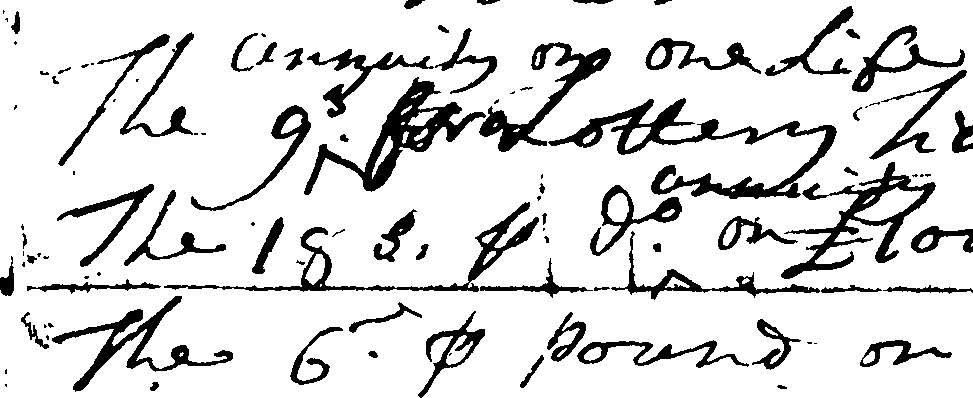 annuity on one Life
The 9s. for a Lottery Ti
annuity
The 18s. ⅌ Do. on £100
The 6. ⅌ pound on